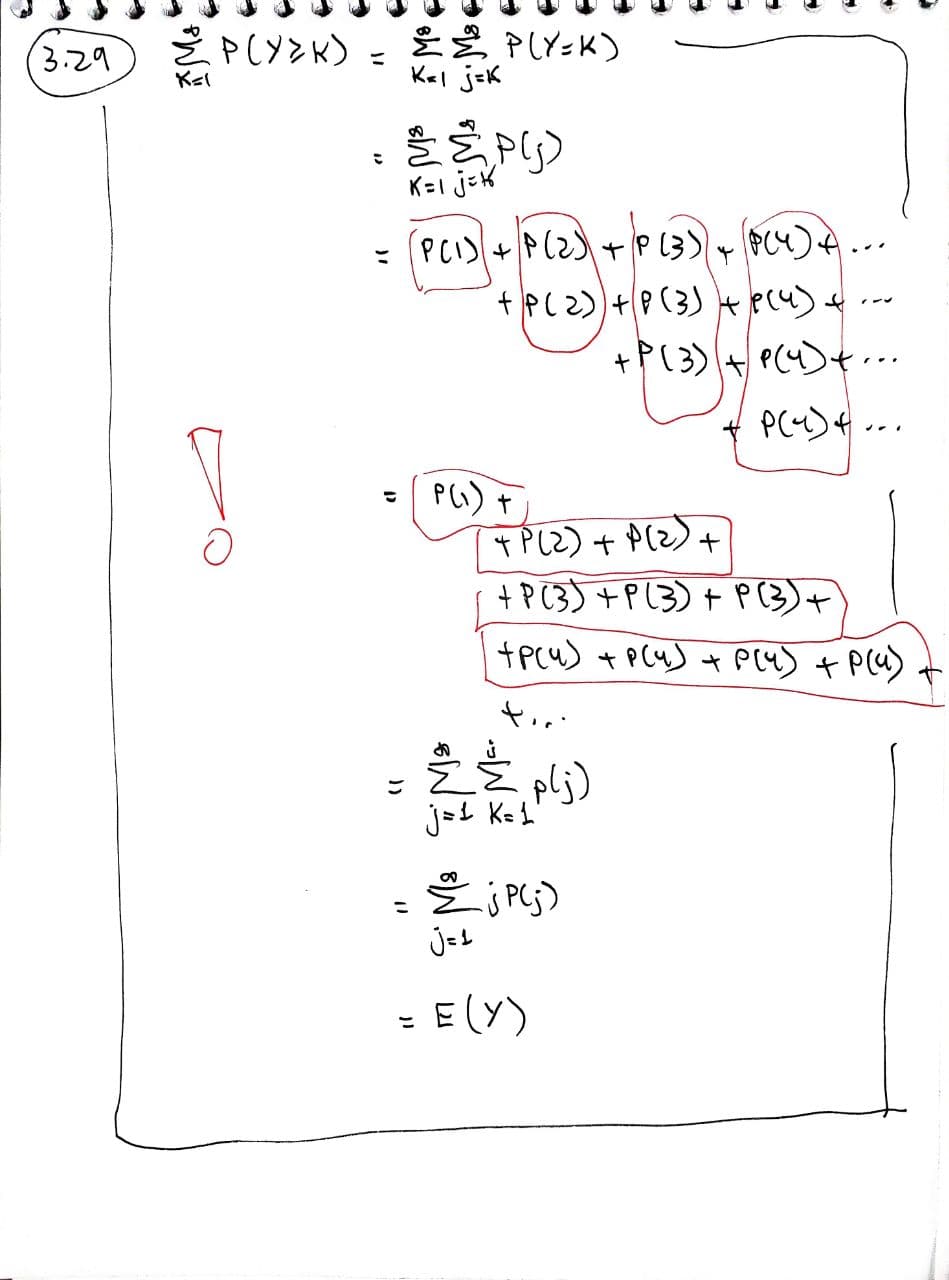 3.29 ∑_{K=1}^{∞} P(Y≥K) = ∑_{K=1}^{∞} ∑_{j=K}^{∞} P(Y=K)
= ∑_{K=1}^{∞} ∑_{j=K}^{∞} P(j)
= P(1) + P(2) + P(3) + P(4) + ...
+ P(2) + P(3) + P(4) + ...
+ P(3) + P(4) + ...
+ P(4) + ...
!
= P(1) +
+ P(2) + P(2) +
+ P(3) + P(3) + P(3) +
+ P(4) + P(4) + P(4) + P(4) +
+ ...
= ∑_{j=1}^{∞} ∑_{K=1}^{j} p(j)
= ∑_{j=1}^{∞} j P(j)
= E(Y)